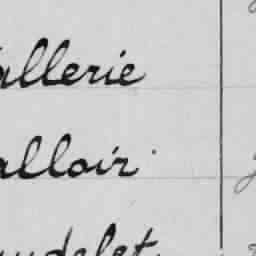 allerie
alloir
udelet